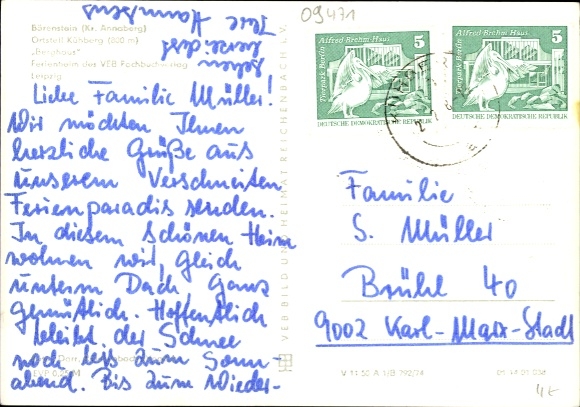 Bärenstein (Kr. Annaberg)
Ortsteil Kühberg (800 m)
"Berghaus"
Ferienheim der VEB Fachbuchverlag
Leipzig
Liebe Familie Müller!
Wir möchten Ihnen
herzliche Grüße aus
unserem verschneiten
Ferienparadis senden.
In diesem schönen Heim
wohnen wir, gleich
unterm Dach. Ganz
gemütlich. Hoffentlich
bleibt der Schnee
noch bis zum Sonn-
abend. Bis zum Wieder-
sehen
herzlichst
Ihre
VEB BILD UND HEIMAT REICHENBACH i. V.
09471
Alfred-Brehm-Haus
Tierpark Berlin
5
DEUTSCHE DEMOKRATISCHE REPUBLIK
Alfred-Brehm-Haus
Tierpark Berlin
5
DEUTSCHE DEMOKRATISCHE REPUBLIK
Familie
S. Müller
Brühl 40
9002 Karl-Marx-Stadt